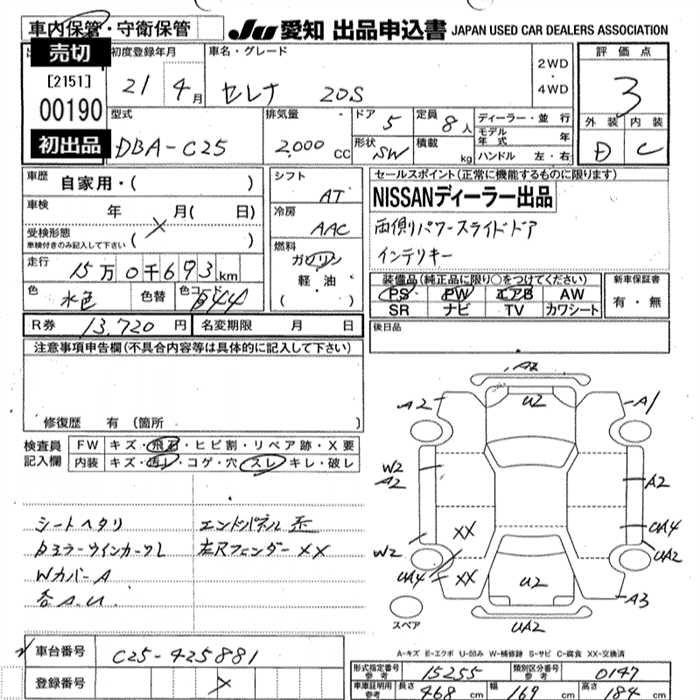 車内保管・守衛保管
JU 愛知 出品申込書 JAPAN USED CAR DEALERS ASSOCIATION
売切
[2151]
00190
初出品
初度登録年月
21 4月
車名・グレード
セレナ 20S
2WD
・
4WD
評価点
3
外装 内装
D C
型式
DBA-C25
排気量
2,000 CC
ドア 5
形状 SW
定員 8人
積載 kg
ディーラー・並行
モデル年式 年
ハンドル 左・右
車歴 自家用・( )
車検 年 月( 日)
受検形態
車検付きのみ記入して下さい ( )
走行 15万0千693km
色 水色 色替 色コード 544
R券 13,720円 名変期限 月 日
シフト
AT
冷房
AAC
燃料
ガソリン
軽油
( ・ )
セールスポイント(正常に機能するものに限ります)
NISSANディーラー出品
両側パワースライドドア
インテリキー
装備品(純正品に限り○をつけてください)
PS PW エアB AW
SR ナビ TV カワシート
新車保証書
有・無
後日品
注意事項申告欄(不具合内容等は具体的に記入して下さい)
修復歴 有 (箇所 )
検査員記入欄
FW キズ・飛石・ヒビ割・リペア跡・X要
内装 キズ・汚レ・コゲ・穴・スレ・キレ・破レ
シートヘタリ エンドパネル歪
Bミラーウインカーワレ 左Rフェンダー XX
Wカバー A
各A.U.
A2
A2 U2 A1
W2
A2 A2
XX UA4
W2 UA2
UA4 XX
U2 A3
スペア
UA2
A-キズ E-エクボ U-凹み W-補修跡 S-サビ C-腐食 XX-交換済
車台番号 C25-425881
登録番号
形式指定番号 参考 15255 類別区分番号 参考 0147
車庫証明用 参考 長さ 468cm 幅 169cm 高さ 184cm